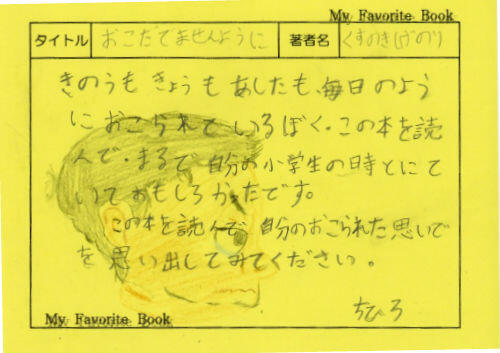 My Favorite Book
タイトル おこだてませんように 著者名 くすのきしげのり
きのうも きょうも あしたも、毎日のよう
に おこられているぼく。この本を読
んで、まるで 自分の小学生の時とにて
いておもしろかったです。
この本を読んで、自分のおこられた思いで
を思い出してみてください。
ちひろ
My Favorite Book